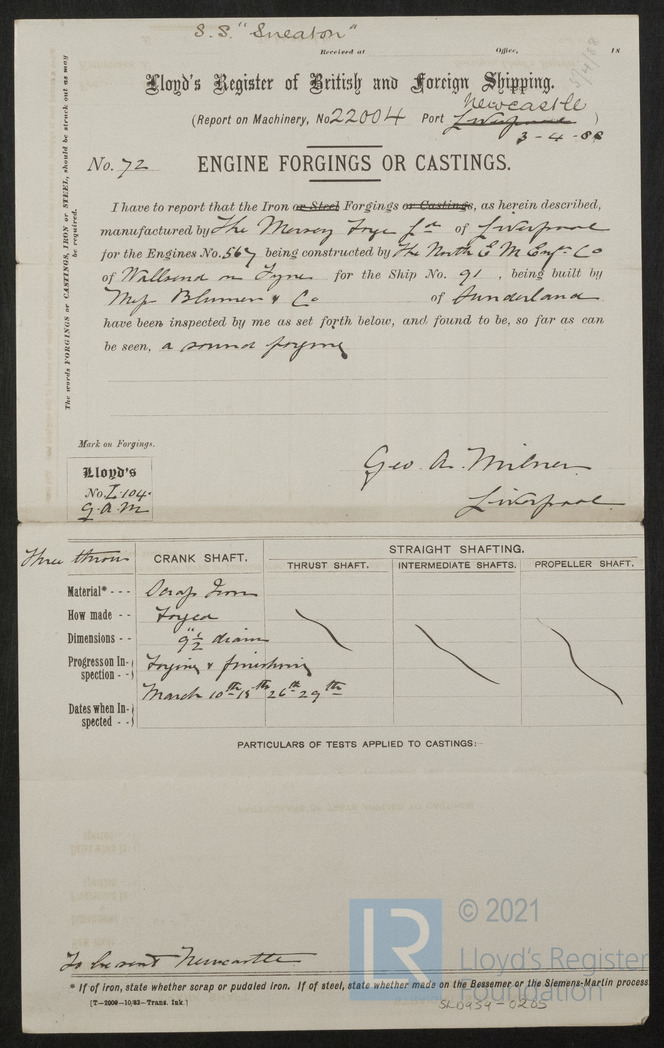 S.S. "Sneaton"
Received at Office, 18
5/4/88
Lloyd's Register of British and Foreign Shipping.
(Report on Machinery, No. 22004 Port Liverpool Newcastle)
3-4-88
No. 72 ENGINE FORGINGS OR CASTINGS.
The words FORGINGS or CASTINGS, IRON or STEEL, should be struck out as may be required.
I have to report that the Iron or Steel Forgings or Castings, as herein described,
manufactured by The Mersey Forge Ld of Liverpool
for the Engines No. 567 being constructed by The North E M Engr Co
of Wallsend on Tyne for the Ship No. 91, being built by
Mess Blumer & Co of Sunderland
have been inspected by me as set forth below, and found to be, so far as can
be seen, a sound forging
Mark on Forgings.
Lloyd's
No. L.104.
G.A.M
Geo. A. Milner
Liverpool
Three throw
CRANK SHAFT. STRAIGHT SHAFTING.
THRUST SHAFT. INTERMEDIATE SHAFTS. PROPELLER SHAFT.
Material* - - - Scrap Iron
How made - - Forged
Dimensions - - 9½" diam
Progress on Inspection - - Forging & finishing
Dates when Inspected - - March 10th 15th 26th 29th
PARTICULARS OF TESTS APPLIED TO CASTINGS:—
To be sent Newcastle
* If of iron, state whether scrap or pudaled iron. If of steel, state whether made on the Bessemer or the Siemens-Martin process
[T—2009—10/83—Trans. Ink.]
SLD959-0205
LR
© 2021
Lloyd's Register
Foundation